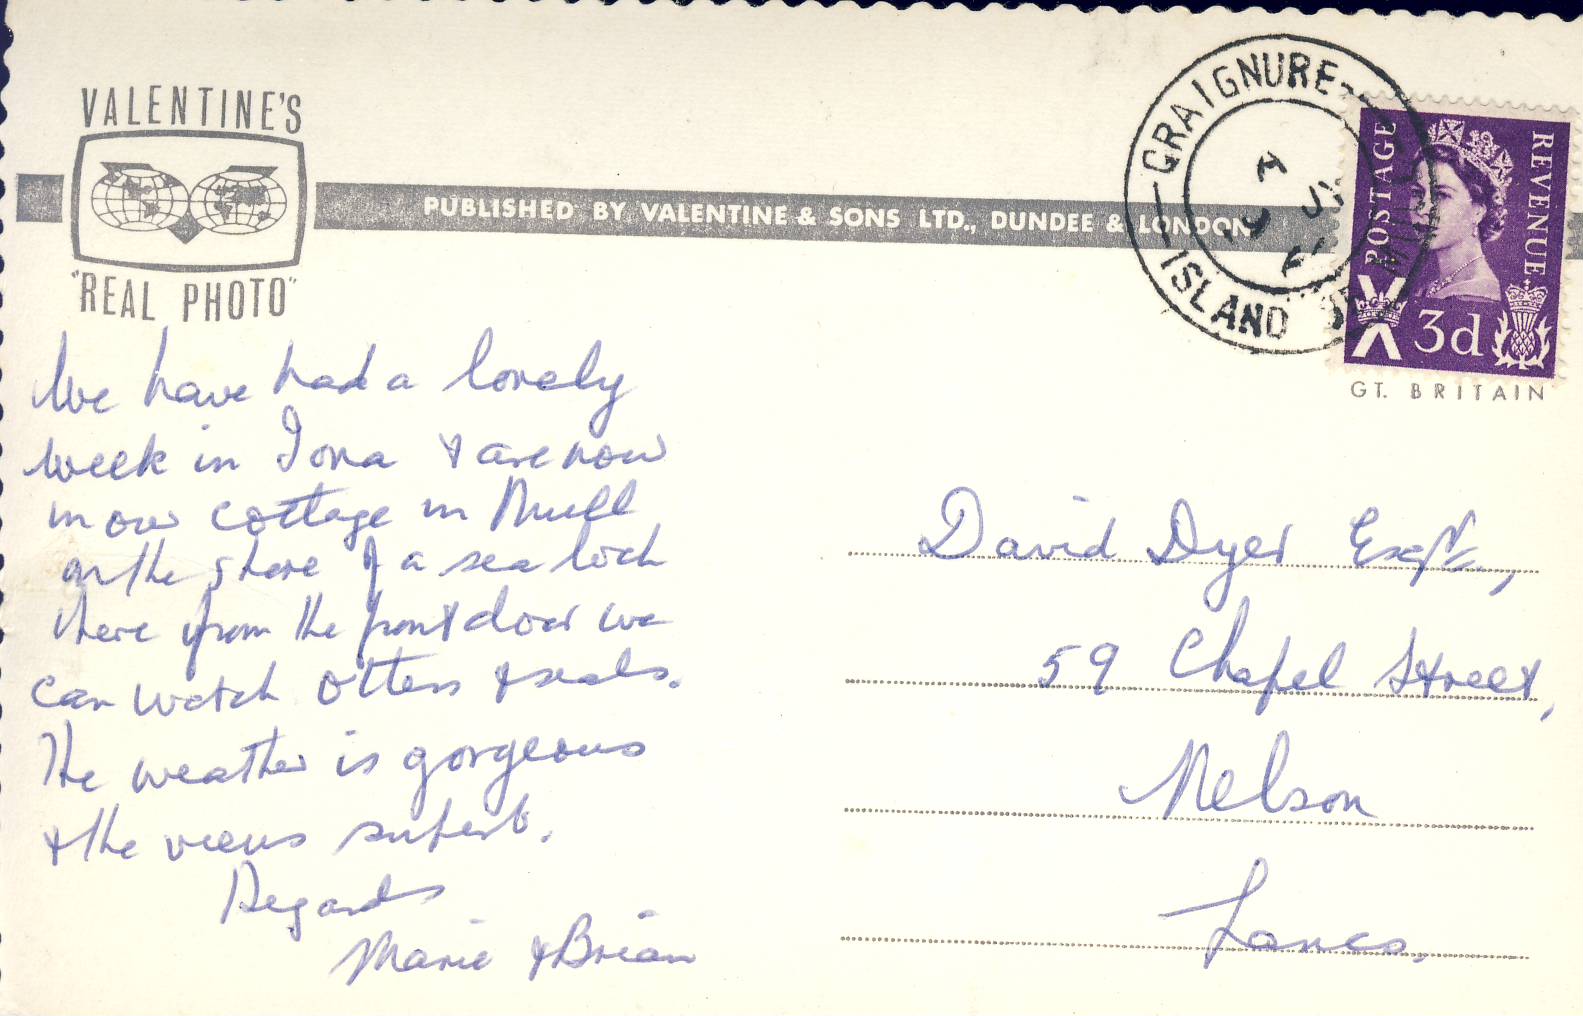 VALENTINE'S
"REAL PHOTO"
PUBLISHED BY VALENTINE & SONS LTD., DUNDEE & LONDON
CRAIGNURE
ISLAND OF MULL
POSTAGE
REVENUE
3d
GT. BRITAIN
We have had a lovely
week in Iona & are now
in our cottage in Mull
on the shore of a sea loch
where from the front door we
can watch otters & seals.
The weather is gorgeous
& the views superb.
Regards
Marie & Brian
David Dyer Esq.,
59 Chapel Street,
Nelson
Lancs.